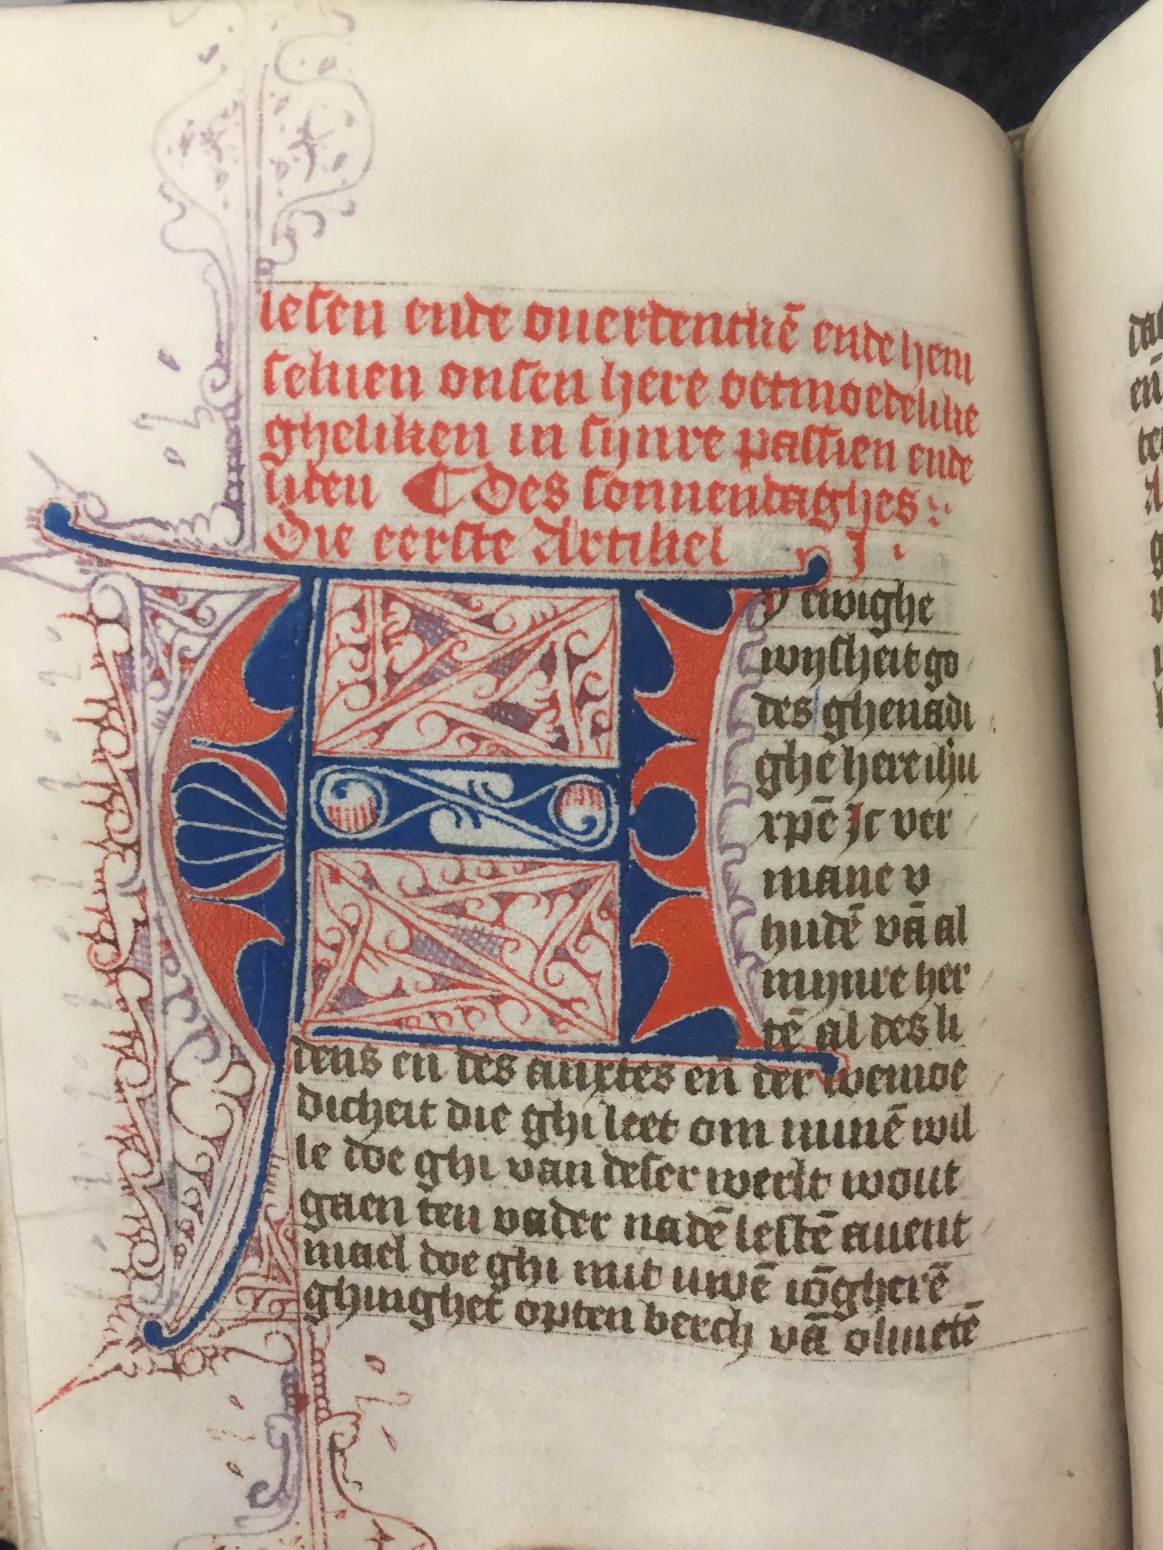 lesen ende ouerdenckē ende hem
seluen onsen here oetmoedelike
gheliken in sijnre passien ende
liden ¶ Des sonnendaghes :
Die eerste Artikel . I .
A y ewighe
wijsheit go
des ghenadi
ghe here ihu
xpē Ic ver
mane v
hudē vā al
mijnre her
tē al des li
dens eñ des anxtes eñ der wemoe
dicheit die ghi leet om minē wil
le doe ghi van deser werlt wout
gaen ten vader nadē lestē auent
mael doe ghi mit uwē iōgherē
ghinghet opten berch vā oliuetē
dat
eñ